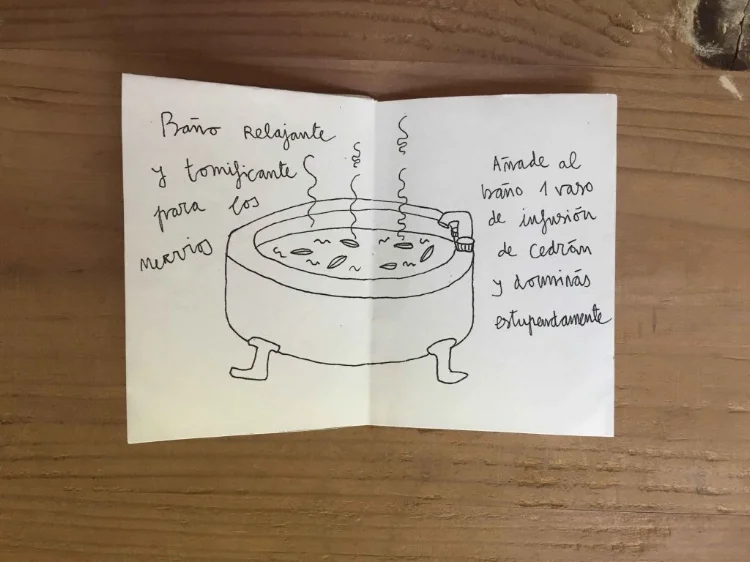 Baño relajante
y tonificante
para los
nervios
Añade al
baño 1 vaso
de infusión
de cedrán
y dormirás
estupendamente